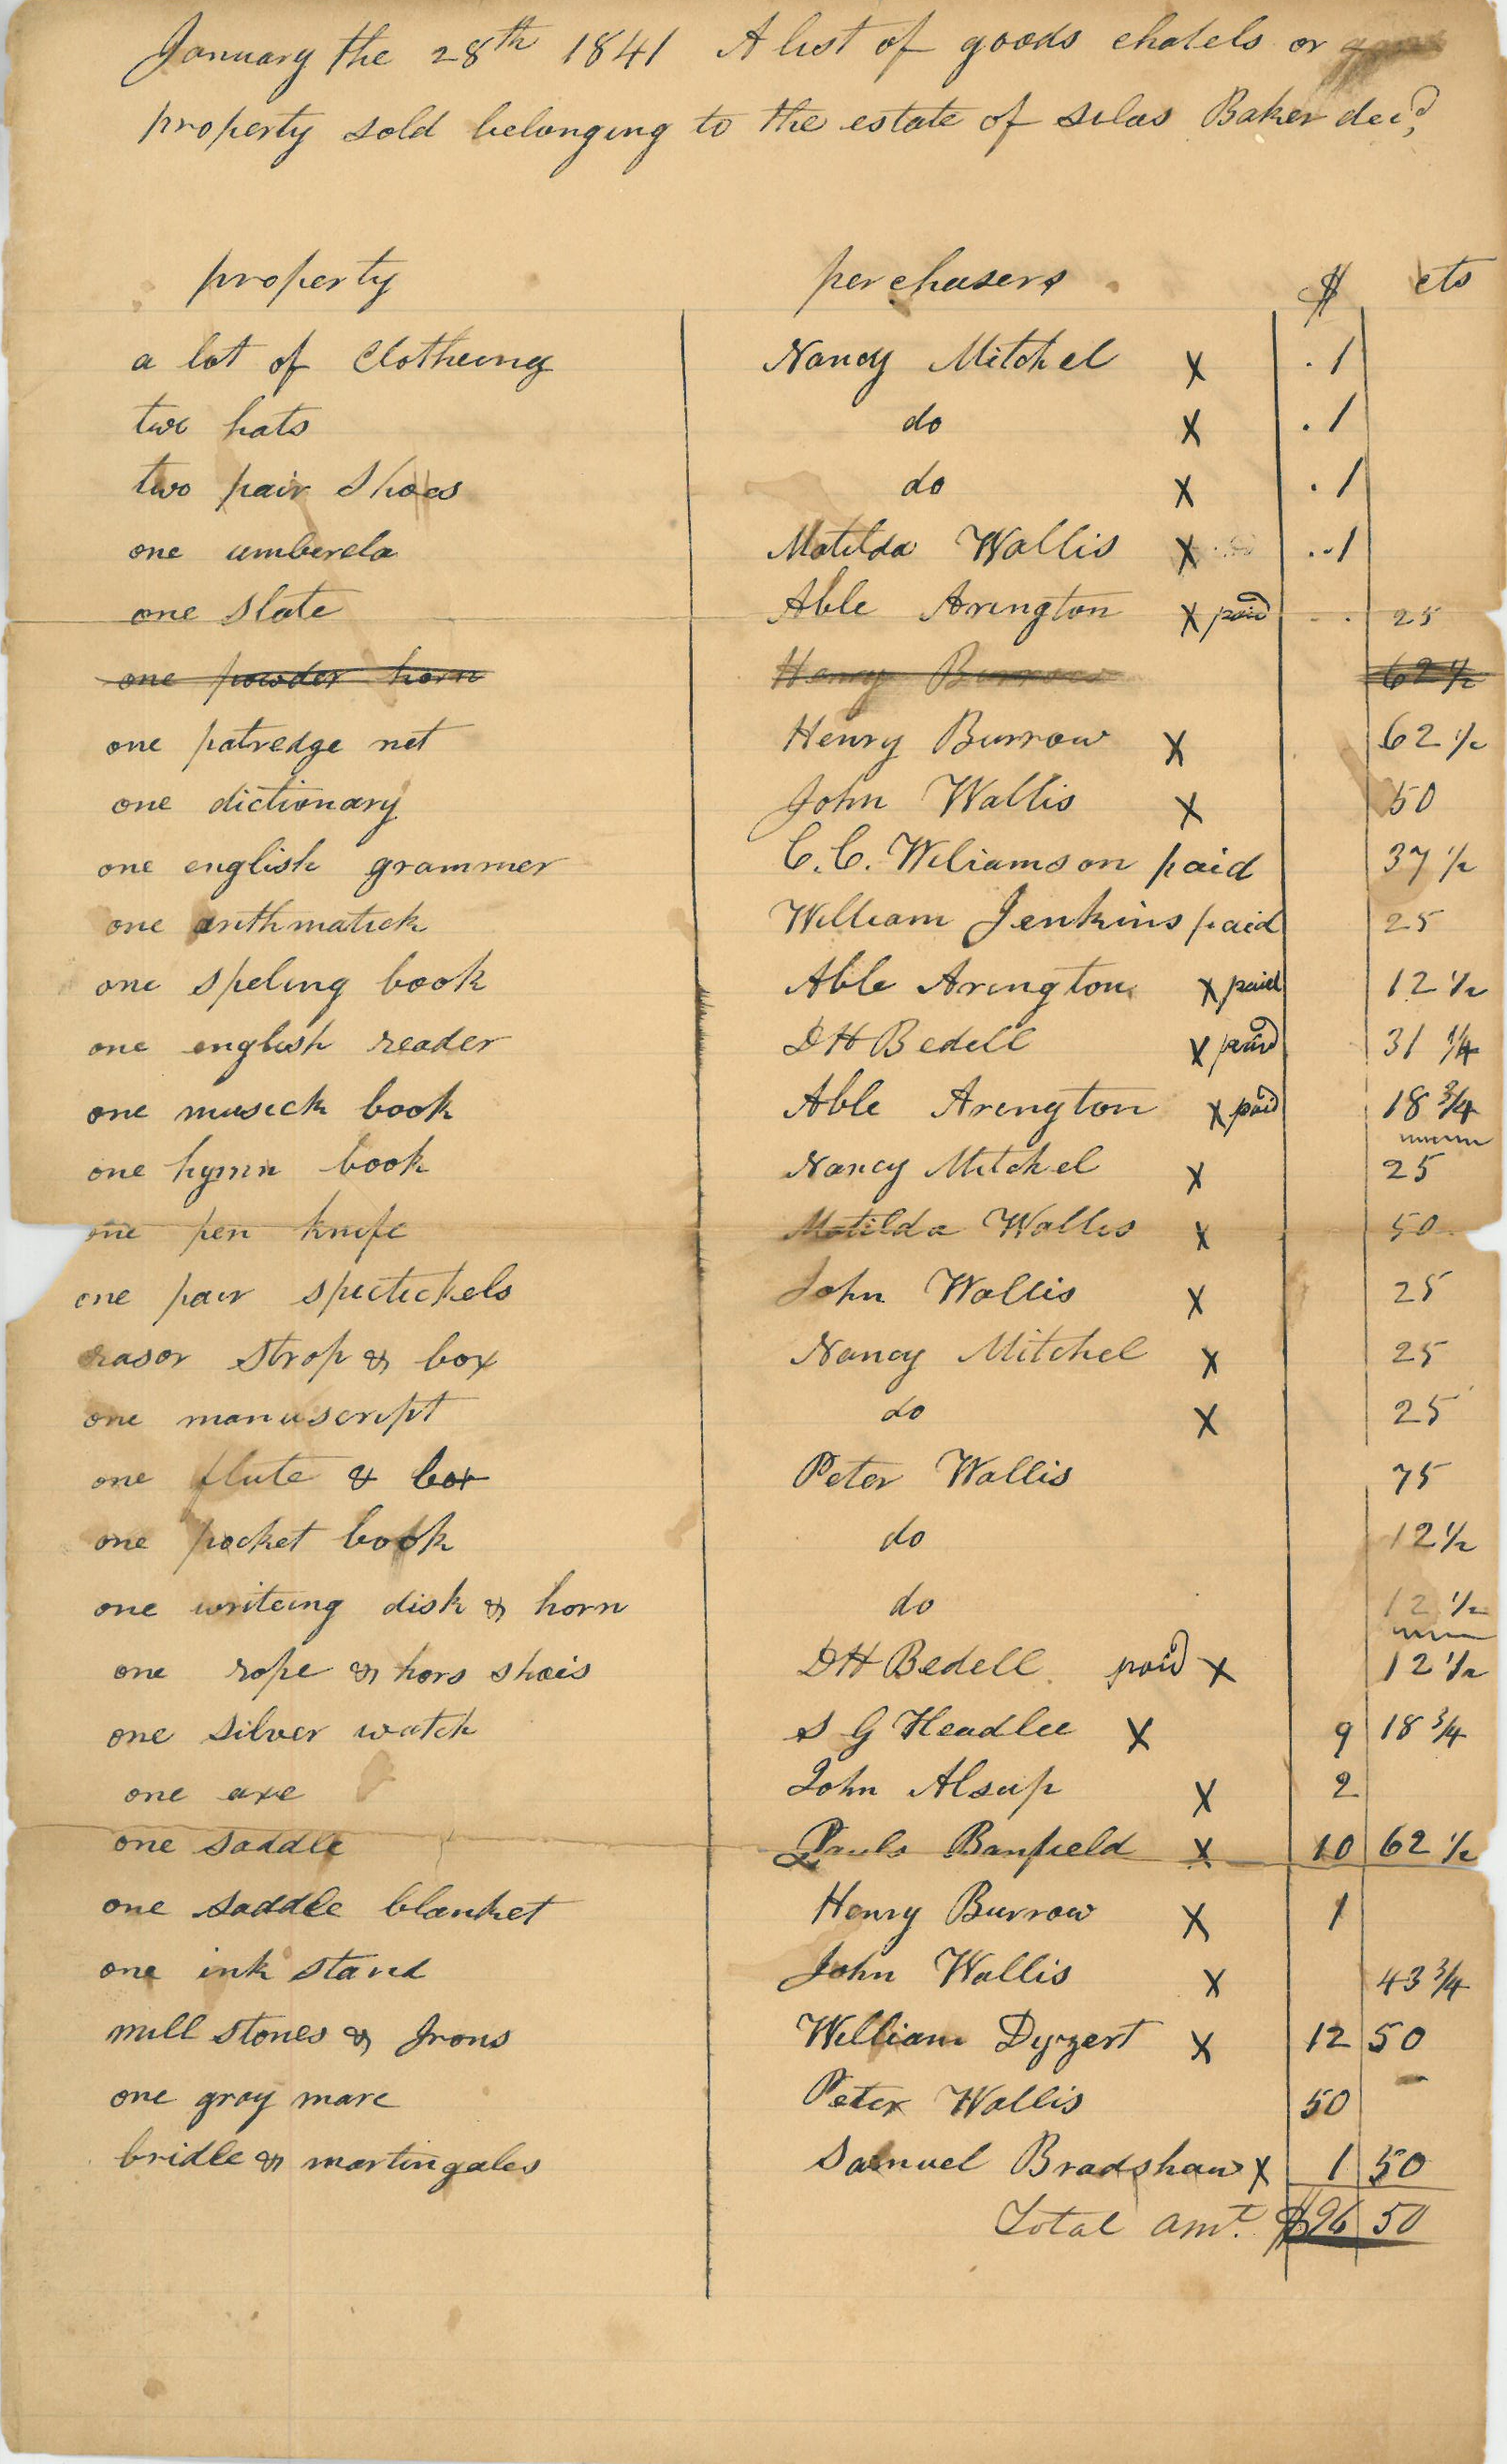 January the 28th 1841 A list of goods chatels or
property sold belonging to the estate of Silas Baker decd.
property perchasers $ cts
a lot of Clotheing Nancy Mitchel X . 1
two hats do X . 1
two pair shoes do X . 1
one umberela Matilda Wallis X .. 1
one slate Able Arington X paid .. 25
one powder horn Henry Burrow 62 1/2
one patredge net Henry Burrow X 62 1/2
one dictionary John Wallis X 50
one english grammer C.C. Wiliamson paid 37 1/2
one arithmatick William Jenkins paid 25
one speling book Able Arington X paid 12 1/2
one english reader D H Bedell X paid 31 1/4
one musick book Able Arington X paid 18 3/4
one hymn book Nancy Mitchel X 25
one pen knife Matilda Wallis X 50
one pair spectickels John Wallis X 25
rasor strop & box Nancy Mitchel X 25
one manuscript do X 25
one flute & box Peter Wallis 75
one pocket book do 12 1/2
one writeing disk & horn do 12 1/2
one rope & hors shoes D H Bedell paid X 12 1/2
one silver watch S G Headlee X 9 18 3/4
one axe John Alsup X 2
one saddle Banfield X 10 62 1/2
one saddle blanket Henry Burrow X 1
one ink stand John Wallis X 43 3/4
mill stones & Irons William Dyzert X 12 50
one gray mare Peter Wallis 50
bridle & martingales Samuel Bradshaw X 1 50
Total amt. $96 50